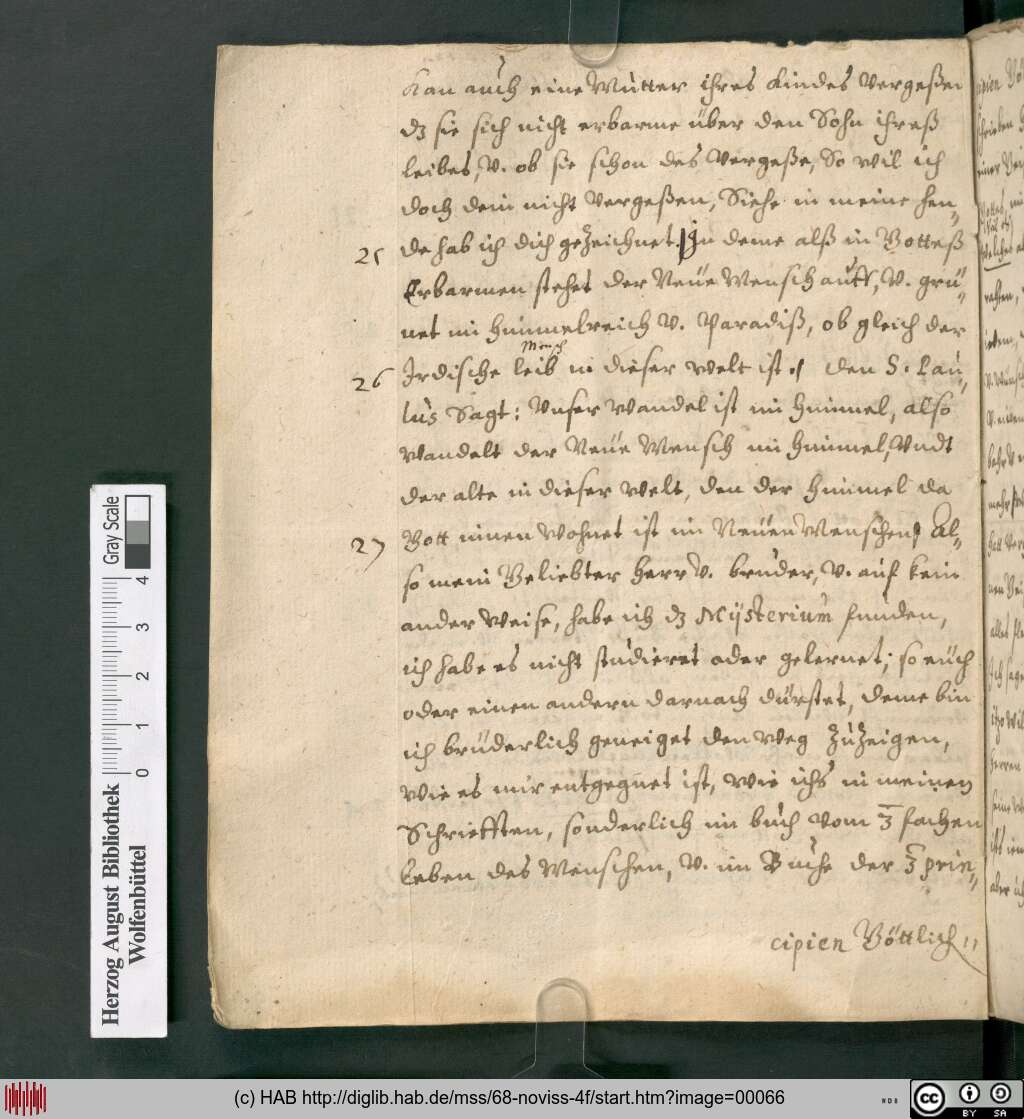 Kan auch eine Mutter ihres Kindes Vergeßen
dz sie sich nicht erbarme über den Sohn ihreß
leibes, V. ob sie schon des Vergeße, So wil ich
doch dein nicht Vergeßen, Siehe in meine hen„
25 de hab ich dich gezeichnet. In deme alß in Gotteß
Erbarmen stehet der Neüe Mensch auff, V. grü„
net im himmelreich V. Paradiß, ob gleich der
Mensch
26 Irdische leib in dieser welt ist. den S. Pau„
lus Sagt: Vnser Wandel ist im himmel, also
wandelt der Neüe Mensch im himmel, Vndt
der alte in dieser welt, den der himmel da
27 Gott innen Wohnet ist im Neüen Menschen, Al„
so mein Geliebter Herr V. bruder, V. auf kein
ander Weise, habe ich dz Mÿsterium funden,
ich habe es nicht studieret oder gelernet; so eüch
oder einen andern darnach dürstet, deme bin
ich brüderlich geneiget den weg zuzeigen,
wie es mir entgegnet ist, wie ichs in meinen
Schriefften, sonderlich im buch vom 3 fachen
Leben des Menschen, V. im Buche der 3 prin„
cipien Göttlich„
Herzog August Bibliothek
Wolfenbüttel
0 1 2 3 4
Gray Scale
(c) HAB http://diglib.hab.de/mss/68-noviss-4f/start.htm?image=00066
WDB
cc BY SA